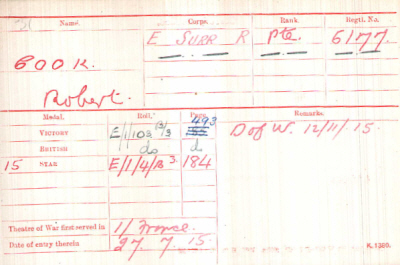 Name. Corps. Rank. Regtl. No.
E SURR R Pte. 6177
COOK.
Robert.
Medal. Roll. Page. Remarks.
VICTORY E/1/103 B/3 493 D of W. 12/11/15.
BRITISH do do
15 STAR E/1/4/B 3. 184
Theatre of War first served in 1/ France
Date of entry therein 27. 7. 15.
K. 1380.